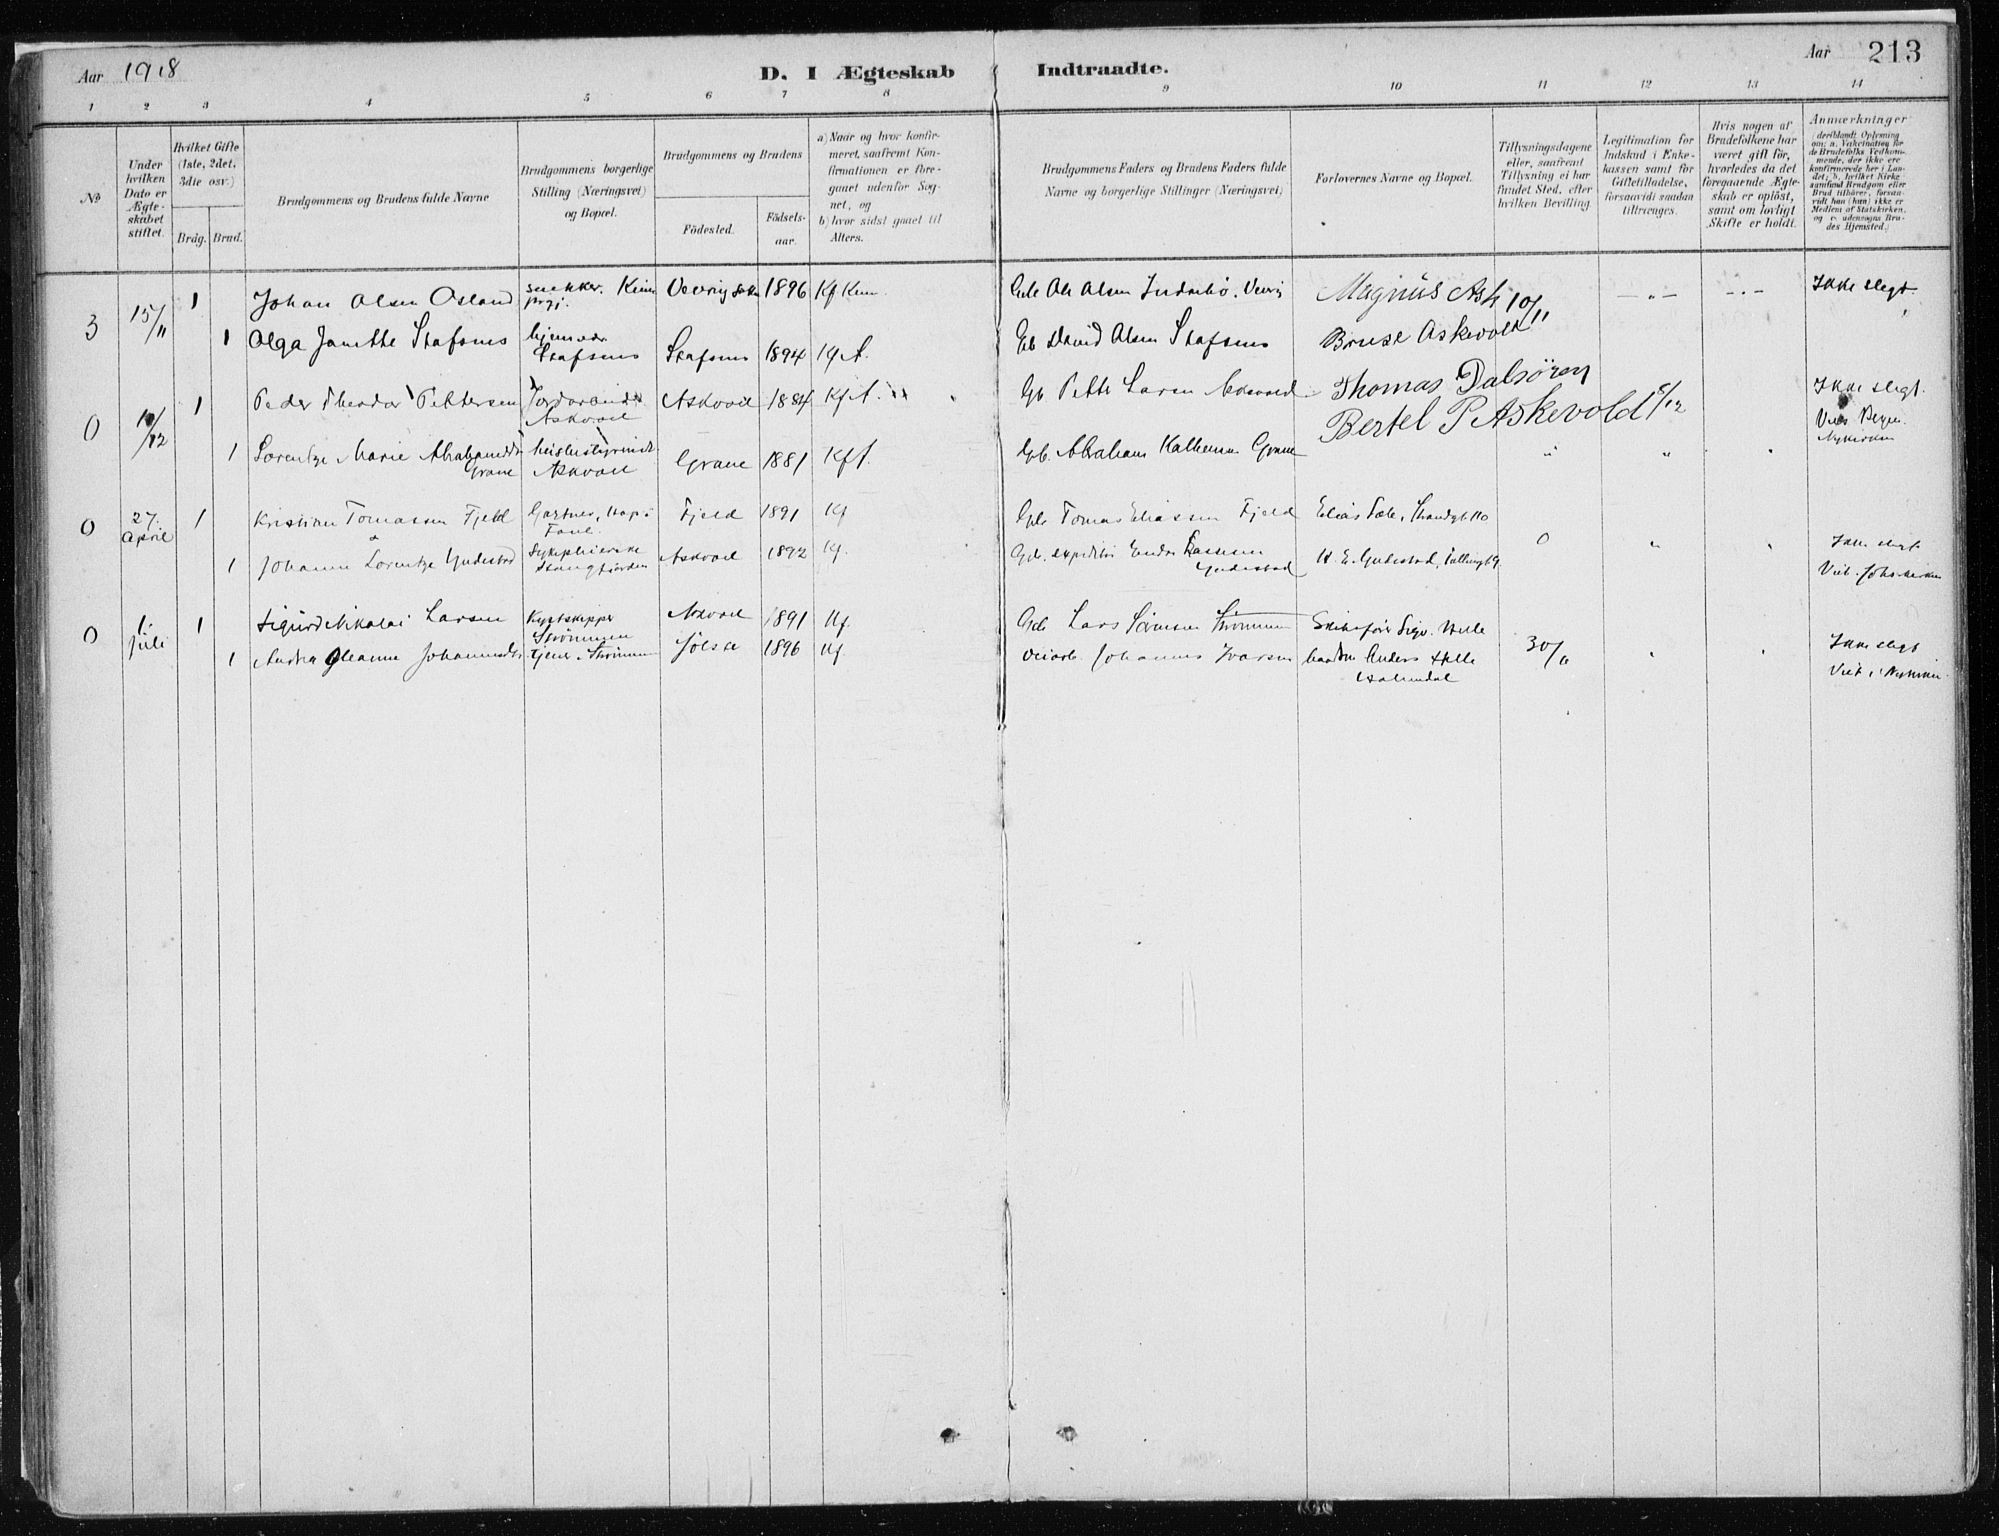 Aar 1918
D. I Ægteskab Indtraadte.
Aar 213
1 2 3 4 5 6 7 8 9 10 11 12 13 14
№
Under hvilken Dato er Ægteskabet stiftet.
Hvilket Gifte (1ste, 2det, 3die osv.)
Brdg. Brud.
Brudgommens og Brudens fulde Navne
Brudgommens borgerlige Stilling (Næringsvei) og Bopæl.
Brudgommens og Brudens
Födested.
Födselsaar.
a) Naar og hvor konfirmeret, saafremt Konfirmationen er foregaaet udenfor Sognet, og
b) hvor sidst gaaet til Alters.
Brudgommens Faders og Brudens Faders fulde Navne og borgerlige Stillinger (Næringsvei)
Forlovernes Navne og Bopæl.
Tillysningsdagene eller, saafremt Tillysning ei har fundet Sted, efter hvilken Bevilling.
Legitimation for Indskud i Enkekassen samt for Giftetilladelse, forsaavidt saadan tiltrænges.
Hvis nogen af Brudefolkene har været gift för, hvorledes da det foregaaende Ægteskab er oplöst, samt om lovligt Skifte er holdt.
Anmærkninger
(deriblandt Oplysning om: a. Vakcination for de Brudefolks Vedkommende, der ikke ere konfirmerede her i Landet; b. hvilket Kirkesamfund Brudgom eller Brud tilhörer, forsaavidt han (hun) ikke er Medlem af Statskirken, og c. udensogns Brudes Hjemsted.)
3 15/11 1 Johan Olsen Osland snekker. Kinn prgj. Vevring 1896 Kf Kinn Gb Ole Olsen Indrebö. Vevr. Magnus Ask 10/11 Ikke slegt.
1 Olga Janethe Stafsnes hjemvær Stafsnes Stafsnes 1894 Kf A. Gb David Olsen Stafsnes Bruse Askevold
0 10/12 1 Peder Theodor Pettersen Jordarbeider Askvoll Askvoll 1884 Kf A. Gb Petter Larsen Askvoll Thomas Dalsören 6/12 Ikke slegt.
Bertel P Askevold Viet Bergen. Nykirken
1 Lorentze Marie Abrahamsdtr Grane Askvoll Grane 1881 Kf A. Gb. Abraham Grane
0 27. April 1 Kristian Tomassen Fjeld Gartner, Hop i Fane Fjeld 1891 Kf Gb Tomas Eliassen Fjeld Elias Sæle, Strandgt. 110
1 Johanne Lorentze Yndestad Sykepleierske Stongfjorden Askvoll 1892 Kf. Gb. expeditör Endre Lassesen Yndestad H. E. Yndestad, 0 Ikke slegt
Viet. Johs. kirken
0 1. juli 1 Sigurd Nikolai Larsen Kystskipper Strömmen Askvoll 1891 Kf. Gb Lars Simonsen Strömmen Skibsförer Sigv. Helle
1 Andrea Oleanne Johannesdtr tjener Strömmen Jölster 1896 Kf. veiarb. Johannes Ivarsen Anders Helle Holmedal 30/6 Ikke slegt
Viet i Nykirken.